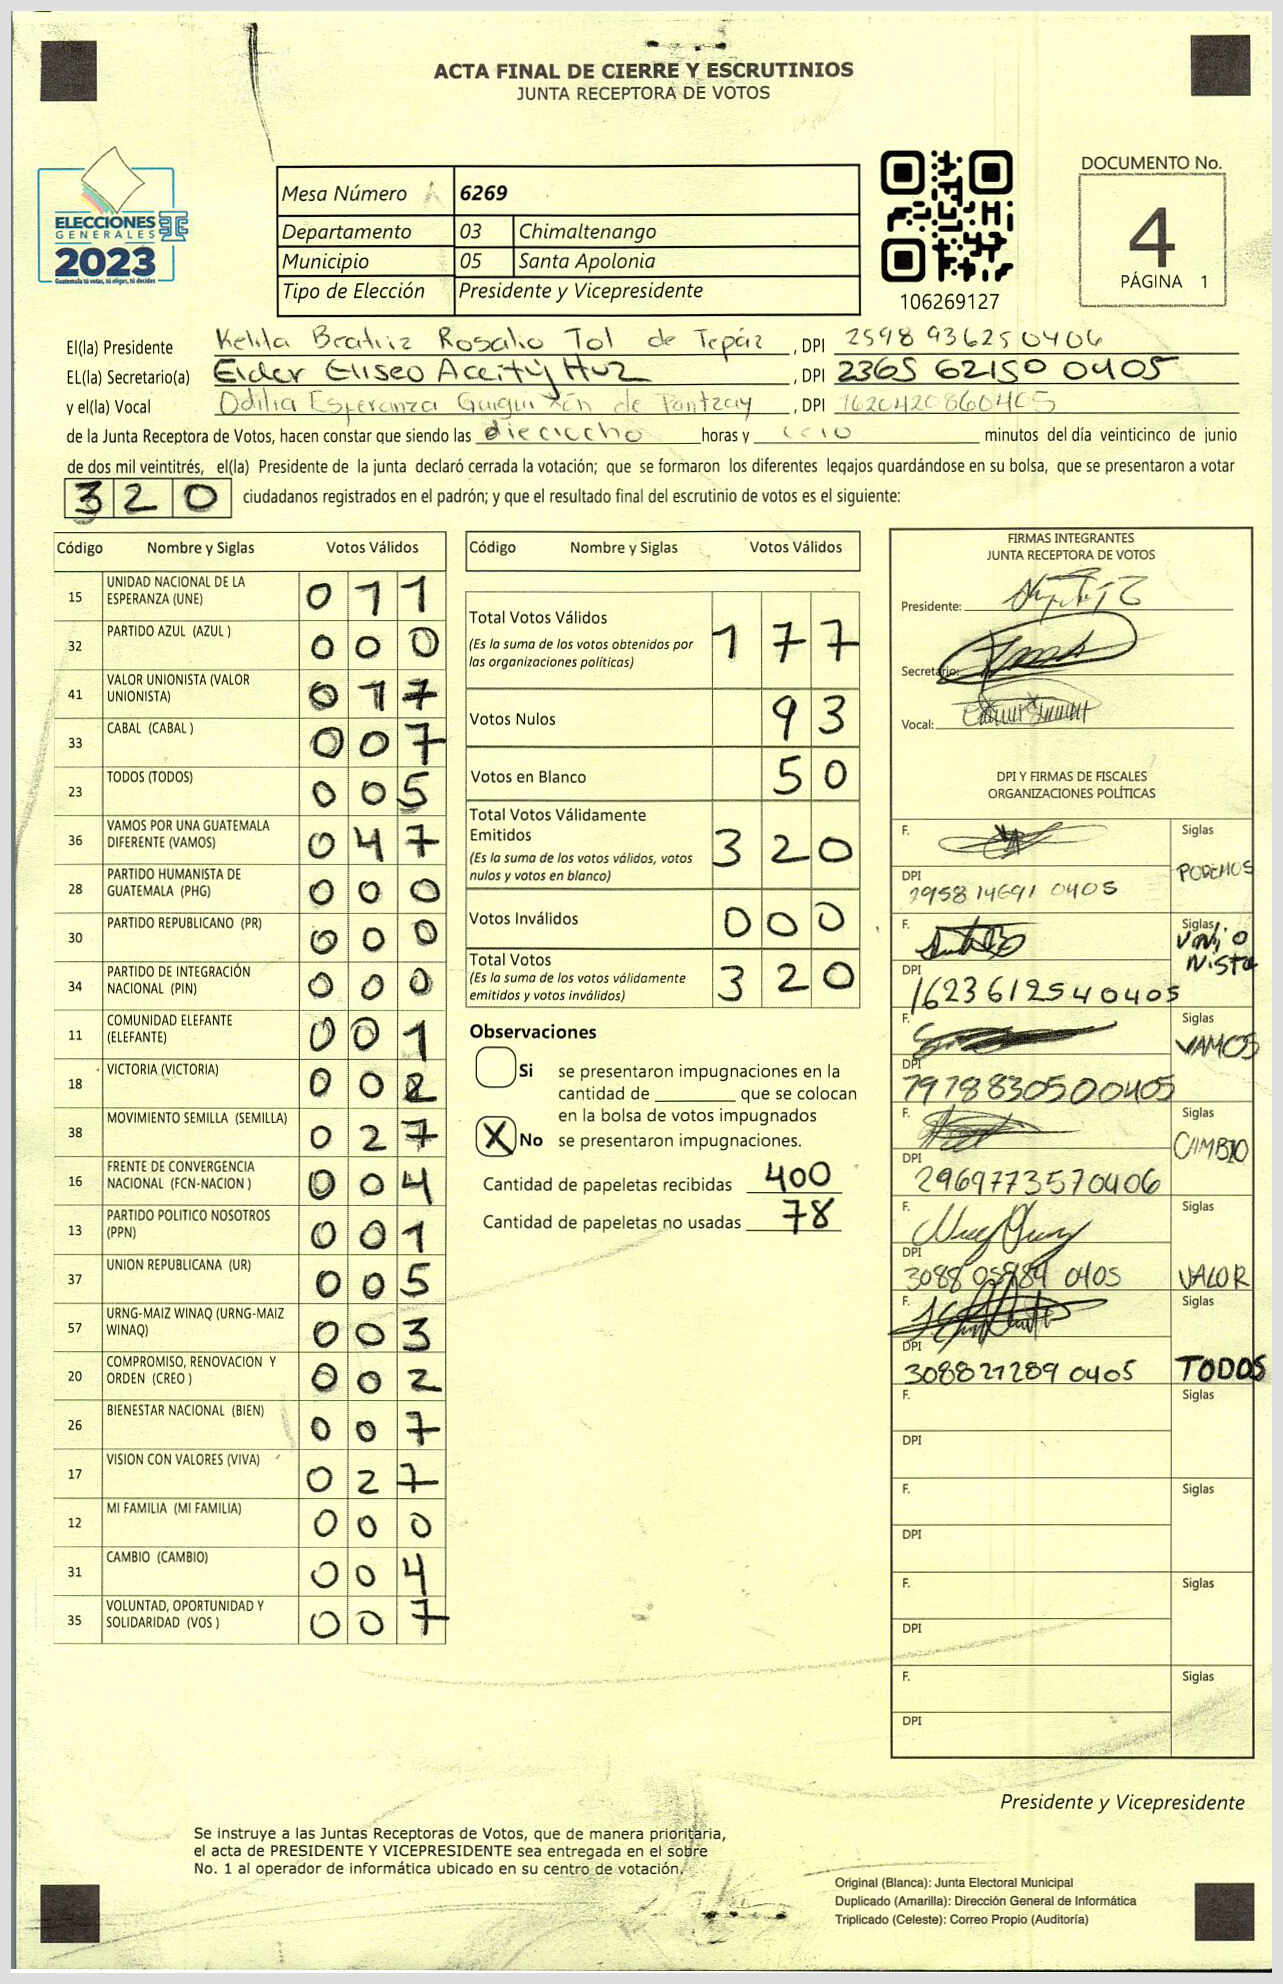 ACTA FINAL DE CIERRE Y ESCRUTINIOS
JUNTA RECEPTORA DE VOTOS
ELECCIONES
GENERALES
2023
Guatemala tú votas, tú eliges, tú decides
Mesa Número 6269
Departamento 03 Chimaltenango
Municipio 05 Santa Apolonia
Tipo de Elección Presidente y Vicepresidente
106269127
DOCUMENTO No.
4
PÁGINA 1
El(la) Presidente Kelita Beatriz Rosalio Tol de Tepáz, DPI 2598 93625 0406
EL(la) Secretario(a) Elder Eliseo Aceitú Huz, DPI 2365 62150 0405
y el(la) Vocal Odilia Esperanza de Pantzay, DPI 1620420860405
de la Junta Receptora de Votos, hacen constar que siendo las dieciocho horas y cero minutos del día veinticinco de junio
de dos mil veintitrés, el(la) Presidente de la junta declaró cerrada la votación; que se formaron los diferentes legajos quardándose en su bolsa, que se presentaron a votar
320 ciudadanos registrados en el padrón; y que el resultado final del escrutinio de votos es el siguiente:
Código Nombre y Siglas Votos Válidos
15 UNIDAD NACIONAL DE LA ESPERANZA (UNE) 011
32 PARTIDO AZUL (AZUL ) 000
41 VALOR UNIONISTA (VALOR UNIONISTA) 017
33 CABAL (CABAL ) 007
23 TODOS (TODOS) 005
36 VAMOS POR UNA GUATEMALA DIFERENTE (VAMOS) 047
28 PARTIDO HUMANISTA DE GUATEMALA (PHG) 000
30 PARTIDO REPUBLICANO (PR) 000
34 PARTIDO DE INTEGRACIÓN NACIONAL (PIN) 000
11 COMUNIDAD ELEFANTE (ELEFANTE) 001
18 VICTORIA (VICTORIA) 002
38 MOVIMIENTO SEMILLA (SEMILLA) 027
16 FRENTE DE CONVERGENCIA NACIONAL (FCN-NACION ) 004
13 PARTIDO POLITICO NOSOTROS (PPN) 001
37 UNION REPUBLICANA (UR) 005
57 URNG-MAIZ WINAQ (URNG-MAIZ WINAQ) 003
20 COMPROMISO, RENOVACION Y ORDEN (CREO ) 002
26 BIENESTAR NACIONAL (BIEN) 007
17 VISION CON VALORES (VIVA) 027
12 MI FAMILIA (MI FAMILIA) 000
31 CAMBIO (CAMBIO) 004
35 VOLUNTAD, OPORTUNIDAD Y SOLIDARIDAD (VOS ) 007
Código Nombre y Siglas Votos Válidos
Total Votos Válidos 177
(Es la suma de los votos obtenidos por
las organizaciones políticas)
Votos Nulos 93
Votos en Blanco 50
Total Votos Válidamente
Emitidos 320
(Es la suma de los votos válidos, votos
nulos y votos en blanco)
Votos Inválidos 000
Total Votos 320
(Es la suma de los votos válidamente
emitidos y votos inválidos)
Observaciones
Si se presentaron impugnaciones en la
cantidad de ________ que se colocan
en la bolsa de votos impugnados
X No se presentaron impugnaciones.
Cantidad de papeletas recibidas 400
Cantidad de papeletas no usadas 78
FIRMAS INTEGRANTES
JUNTA RECEPTORA DE VOTOS
Presidente:
Secretario:
Vocal:
DPI Y FIRMAS DE FISCALES
ORGANIZACIONES POLÍTICAS
F. Siglas
DPI 2958 14691 0405 PODEMOS
F. Siglas
DPI 1623612540405 UNIONISTA
F. Siglas
DPI 7978830500405 VAMOS
F. Siglas
DPI 2969773570406 CAMBIO
F. Siglas
DPI 3088 05984 0405 VALOR
F. Siglas
DPI 308821289 0405 TODOS
F. Siglas
DPI
F. Siglas
DPI
F. Siglas
DPI
F. Siglas
DPI
Presidente y Vicepresidente
Se instruye a las Juntas Receptoras de Votos, que de manera prioritaria,
el acta de PRESIDENTE Y VICEPRESIDENTE sea entregada en el sobre
No. 1 al operador de informática ubicado en su centro de votación.
Original (Blanca): Junta Electoral Municipal
Duplicado (Amarilla): Dirección General de Informática
Triplicado (Celeste): Correo Propio (Auditoría)